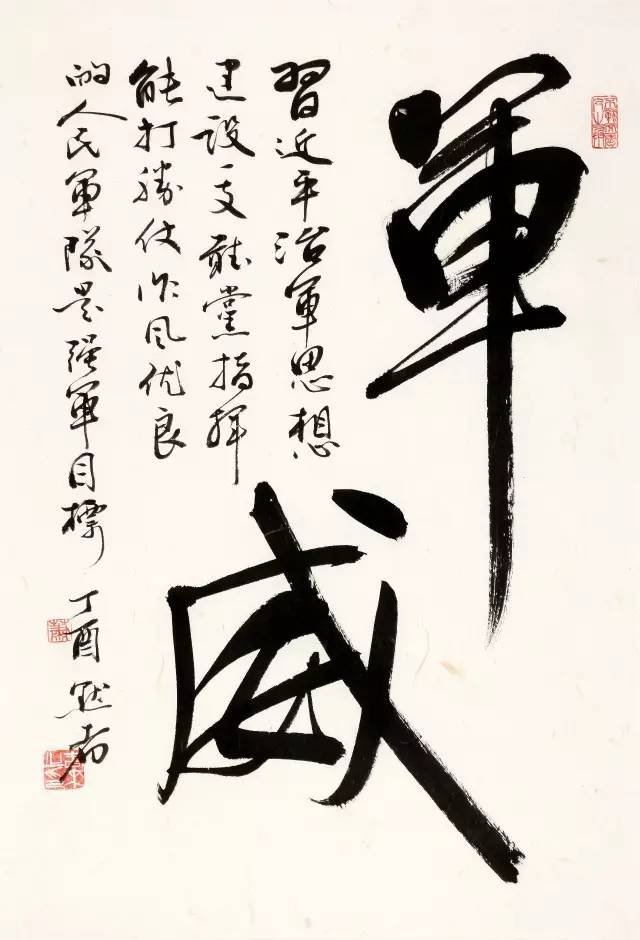 軍
威
習近平治軍思想
建設一支聽黨指揮
能打勝仗作風优良
的人民軍隊是强軍目標 丁酉